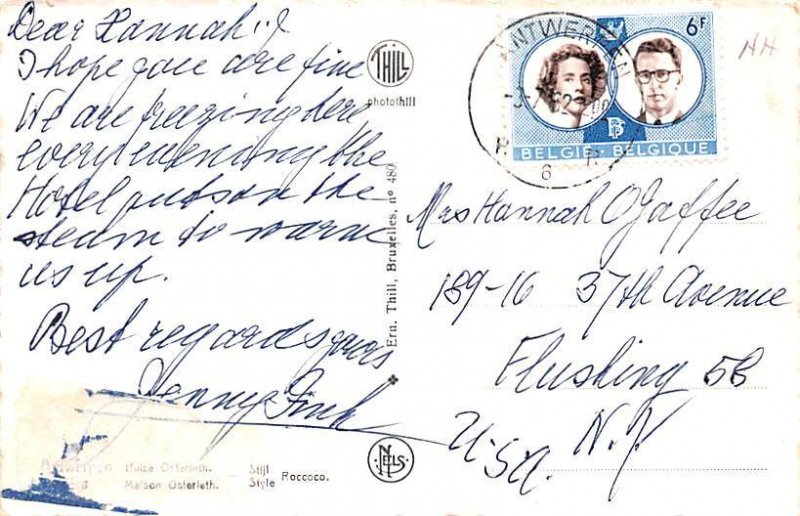 Dear Hannah:
I hope you are fine
We are freezing here
every evening the
Hotel puts on the
steam to warm
us up.
Best regards yours
Jenny Fink
THILL
photothill
Ern. Thill, Bruxelles, nº 480
NELS
ANTWERPEN
62
6
6F
BELGIE-BELGIQUE
HH
Mrs Hannah O Jaffee
189-16 37th Avenue
Flushing 58
N.Y.
U.S.A.
Huize Osterieth. - Stijl
Maison Osterieth. Style Roccoco.